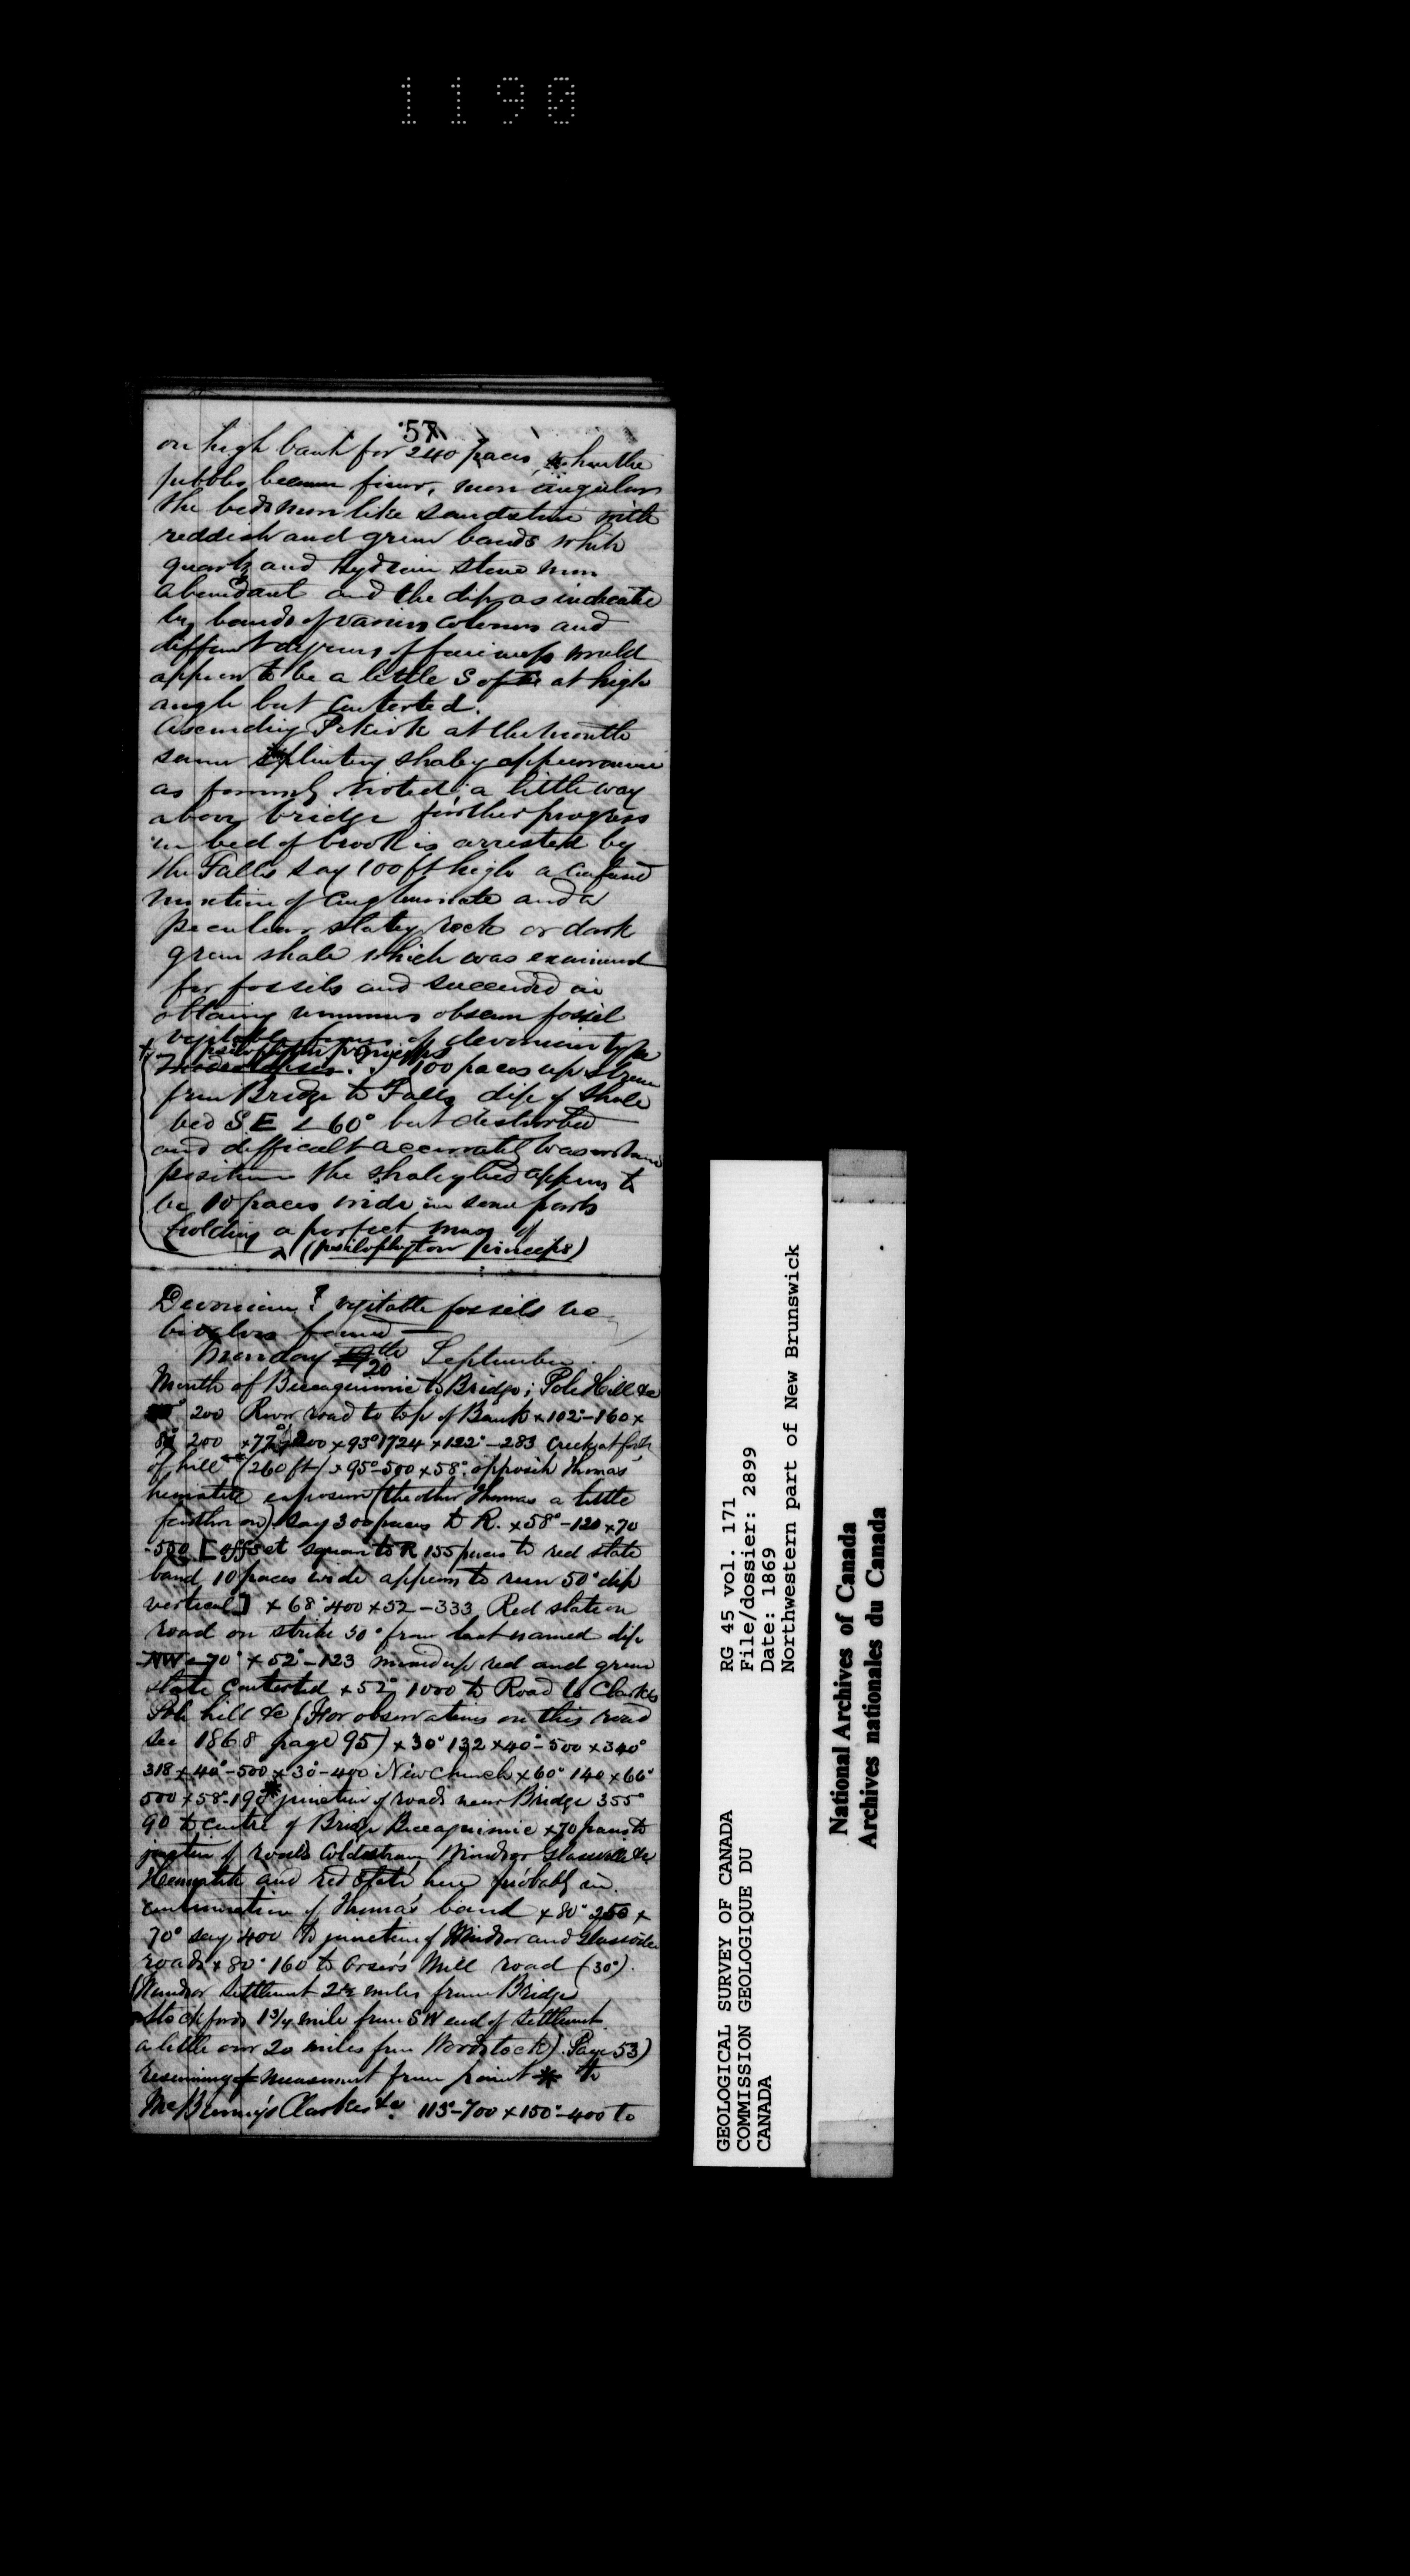 1190
57
on high bank for 240 paces, when the
pebbles become finer, more angular
the beds more like sandstone with
reddish and green bands white
quartz and stone more
abundant and the dip as indicate
by bands of various colours and
different degrees of fineness would
appear to be a little S of E at high
angle but contorted.
Ascending Pokiok at the mouth
same splintery shaley appearance
as formerly noted; a little way
above bridge further progress
in bed of brook is arrested by
the Falls say 100 ft high a confused
mixture of conglomerate and a
peculiar slatey rock or dark
green shale which was examined
for fossils and succeeded in
obtaing numerous obscure fossil
vegitable forms of devonian type
psilophyton princeps
100 paces up stream
from Bridge to Falls dip of shale
bed S E ∠ 60° but disturbed
and difficult accurately
position the shaley bed appears to
be 10 paces wide in some parts
holding a perfect mass of
(psilophyton princeps)
Devonian? vegitable fossils no
bivalves found —
Monday 20th September.
Mouth of Beccaguimic to Bridge; Pole Hill &c
200 River road to top of Bank x 102°-160 x
200 x 77° 200 x 93° 1724 x 122°-283 Creek at foot
of hill (260 ft) x 95°-500 x 58° opposite Thomas'
hematite exposure (the other Thomas a little
farther on) say 300 paces to R. x 58°-120 x 70
-550 [offset square to R 155 paces to red slate
band 10 paces wide appears to run 50° dip
vertical] x 68° 400 x 52-333 Red slate on
road on strike 50° from last named dip
NW 70° x 52°-123 mixed up red and green
slate contorted x 52° 1000 to Road to Clarkes
Pole hill &c (For observations on this road
see 1868 page 95) x 30° 132 x 40°-500 x 340°
318 x 40°-500 x 30-400 New Church x 60° 140 x 66°
500 x 58°-190 * junction of roads near Bridge 355°
90 to centre of Bridge Beccaguimic x 70 paces to
junction of roads Coldstream Windsor Glassville &c
Hematite and red slate here probably in
continuation of Thomas' band x 80° 250 x
70° say 400 to junction of Windsor and Glassville
roads x 80° 160 to Orser's Mill road (30°).
(Windsor Settlement 2½ miles from Bridge
Stockfords 1¾ mile from SW end of Settlement
a little over 20 miles from Woodstock) Page 53)
resuming measurment from point * to
Clarkes &c 115°-700 x 150°-400 to
GEOLOGICAL SURVEY OF CANADA
COMMISSION GEOLOGIQUE DU
CANADA
RG 45 vol. 171
File/dossier: 2899
Date: 1869
Northwestern part of New Brunswick
National Archives of Canada
Archives nationales du Canada